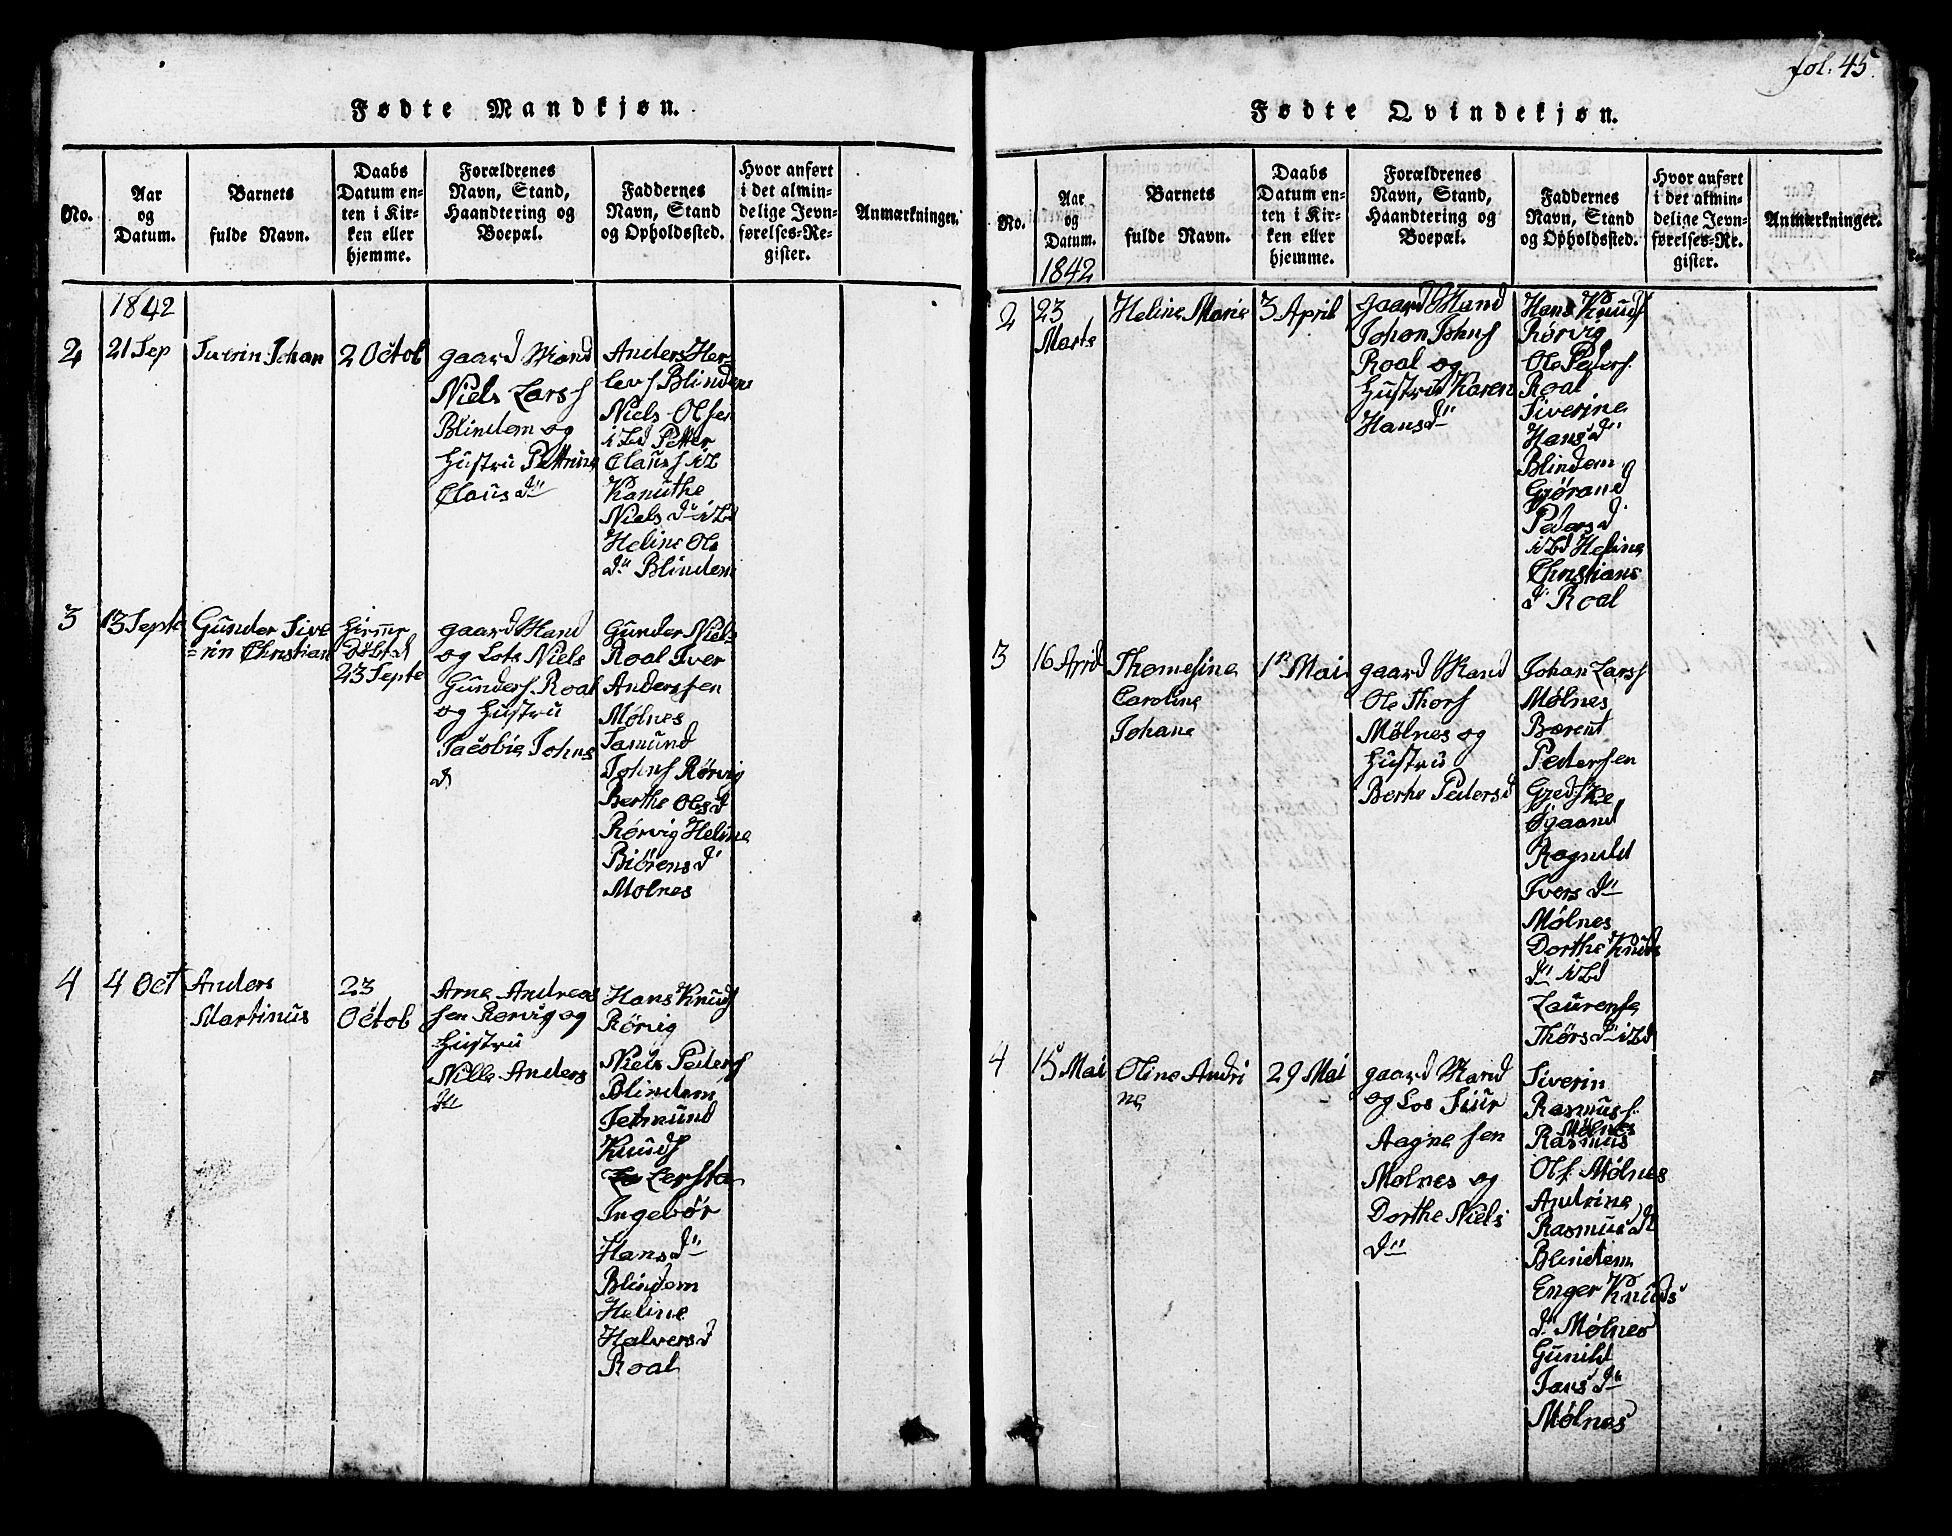 fol: 45.
Fødte Mandkjøn.
No.
Aar
og
Datum.
Barnets
fulde Navn.
Daabs
Datum en-
ten i Kir-
ken eller
hjemme.
Forældrenes
Navn, Stand,
Haandtering og
Boepæl.
Faddernes
Navn, Stand
og Opholdssted.
Hvor anført
i det almin-
delige Jevn-
førelses-Re-
gister.
Anmærkninger.
1842
2
21 Sep
Iverin Johan
2 Octob
gaard Mand
Niels Larsf
Blindem og
Hustru Pettrine
Claus d
Anders Her-
levf Blindem
Niels Olsen
ibd Petter
Clausf ib
Kanuthe
Niels d ibd
Heline Ols
d Blindem
3
13 Septe
Gunder Sive
=rin Christian
Hiemme
Døbt d
23 Septe
gaard Mand
og Lots Niels
Gundersf Roal
og Hustru
Jacobie Johns
d
Gunder Niels
Roal Iver
Andersen
Mølnes
Johnsf Rørvig
Berthe Olsd
Rørvig Heline
Biørensd
Molnes
4
4 Oct
Anders
Martinus
23
Octob
Arne Andreas
sen Rørvig og
Hustru
Nille Anders
d
Hans Knudsf
Rørvig
Niels Pedersf
Blindem
Knudsf
Lersta
Ingebør
Hans d
Blindem
Heline
Halversd
Roal
Fødte Qvindekjøn.
No.
Aar
og
Datum.
1842
Barnets
fulde Navn.
Daabs
Datum en-
ten i Kir-
ken eller
hjemme.
Forældrenes
Navn, Stand,
Haandtering og
Boepæl.
Faddernes
Navn, Stand
og Opholdssted.
Hvor anført
i det almin-
delige Jevn-
førelses-Re-
gister.
Anmærkninger.
2
23
Marts
Heline Marie
3 April
gaard Mand
Johan Johnsf
Roal og
Hustru Karen
Hansd
Hans Knudsf
Rørvig
Ole Pedersf.
Roal
Siverine
Hans d
Blindem
Gjørand
Peders d
ibd Heline
Christians
d Roal
3
16 April
Thomesine
Caroline
Johane
1 Mai
gaard Mand
Ole Thorsf
Mølnes og
Hustru
Berhe Pedersd
Johan Larsf
Mølnes
Bærent
Pedersen
Giedske
Øgaard
Ragnild
Ivers d
Mølnes
Dorthe Knuds
d ibd
Laurense
Thørs d ibd
4
15 Mai
Oline Andri
ne
29 Mai
gaard Mand
og Los Siur
Aagne sen
Molnes og
Dorthe Niels
d
Siverin
Rasmusf.
Mølnes
Rasmus
Olsf Mølnes
Andrine
Rasmus d
Blindem
Enger Knuds
d Mølnes
Gunild
Jans d
Mølnes